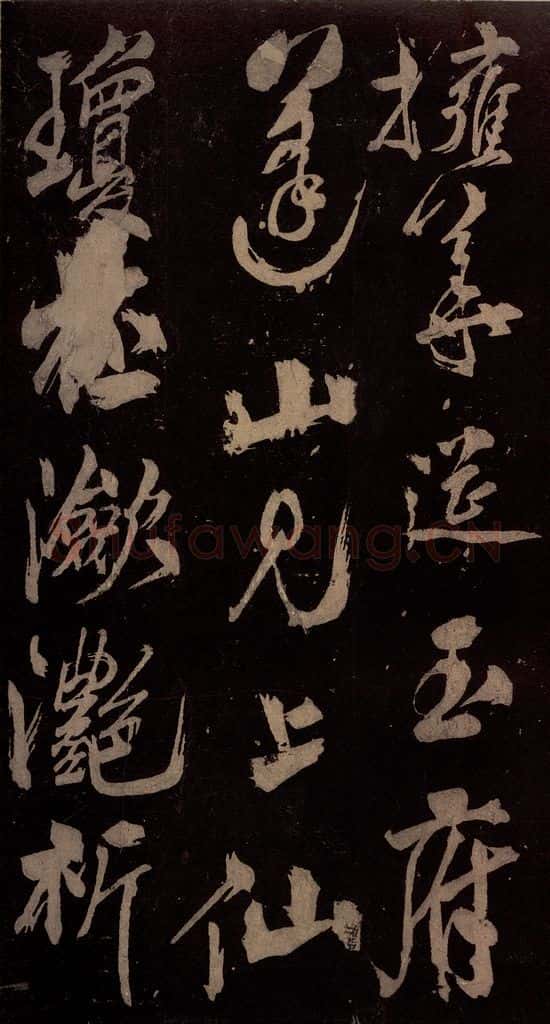 擁玉府
蓬山見上仙
瓊瀲灩析
shufawang.CN